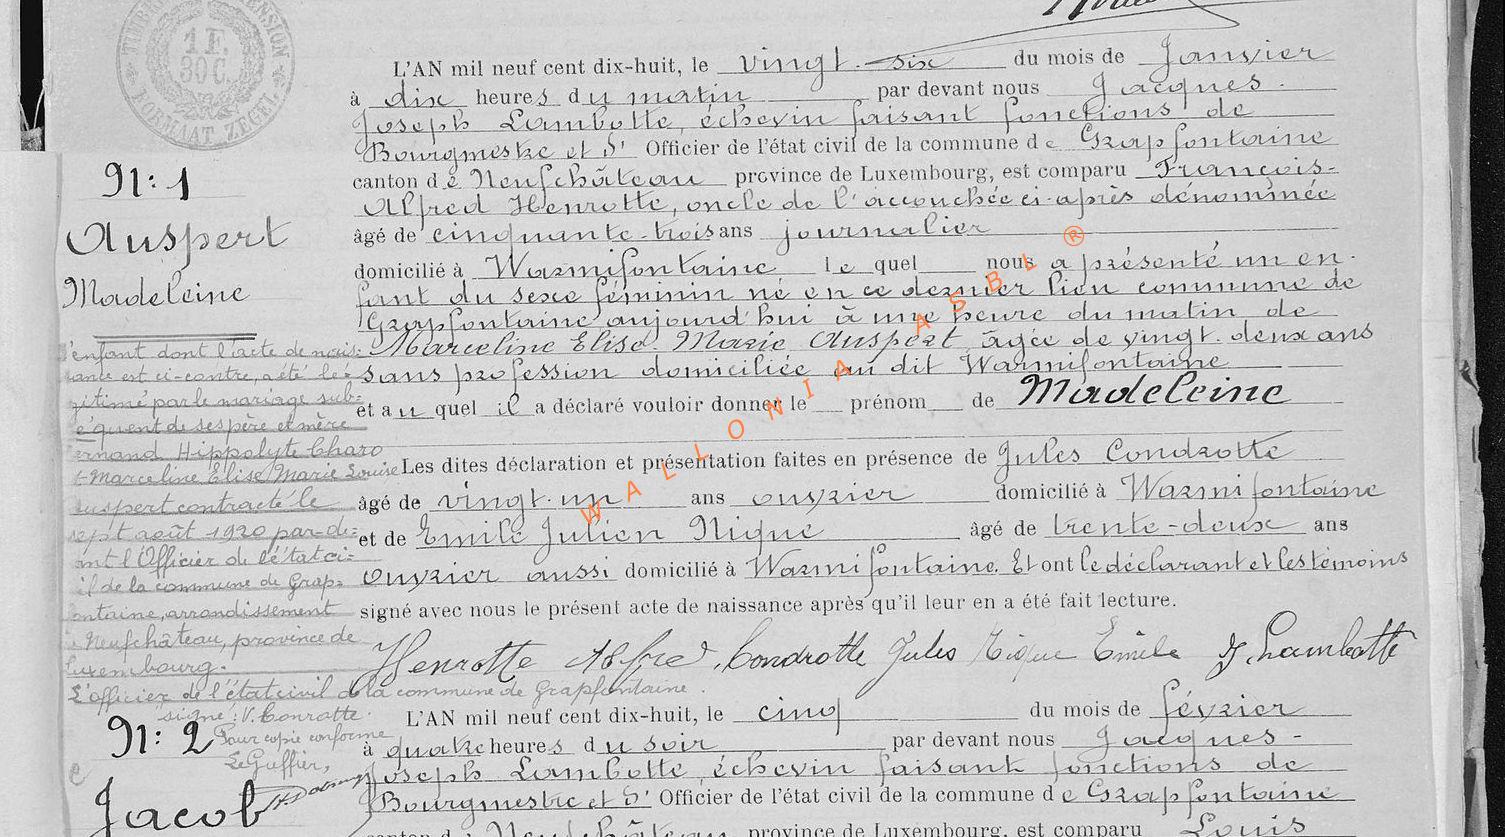 1 F.
30 C.
FORMAAT ZEGEL
L'AN mil neuf cent dix-huit, le vingt-six du mois de Janvier
à dix heures du matin par devant nous Jacques-
Joseph Lambotte, échevin faisant fonctions de
Bourgmestre et d' Officier de l'état civil de la commune de Grapfontaine
canton de Neufchâteau province de Luxembourg, est comparu François-
Alfred Henrotte, oncle de l'accouchée ci-après dénommée
âgé de cinquante-trois ans journalier
domicilié à Warmifontaine lequel nous a présenté un en-
fant du sexe féminin né en ce dernier lieu commune de
Grapfontaine aujourd'hui à une heure du matin de
Marceline Elise Marie Auspert, âgée de vingt-deux ans
sans profession domiciliée au dit Warmifontaine
et auquel il a déclaré vouloir donner le prénom de Madeleine
Les dites déclaration et présentation faites en présence de Jules Condrotte
âgé de vingt-un ans ouvrier domicilié à Warmifontaine
et de Emile Julien Nique âgé de trente-deux ans
ouvrier aussi domicilié à Warmifontaine. Et ont le déclarant et les témoins
signé avec nous le présent acte de naissance après qu'il leur en a été fait lecture.
Henrotte Alfred Condrotte Jules Nique Emile J. Lambotte
N: 1
Auspert
Madeleine
L'enfant dont l'acte de nais-
sance est ci-contre, a été lé-
gitimé par le mariage sub-
séquent de ses père et mère
Fernand Hippolyte Charo
et Marceline Elise Marie Louise
Auspert contracté le
sept août 1920 par-de-
vant l'Officier de l'état ci-
vil de la commune de Grap-
fontaine, arrondissement
de Neufchâteau, province de
Luxembourg.
L'officier de l'état civil de la commune de Grapfontaine.
signé: V. Conrotte.
Pour copie conforme
Le Greffier,
WALLONIA ASBL ®
N: 2
Jacob
L'AN mil neuf cent dix-huit, le cinq du mois de février
à quatre heures du soir par devant nous Jacques-
Joseph Lambotte, échevin faisant fonctions de
Bourgmestre et d' Officier de l'état civil de la commune de Grapfontaine
canton de Neufchâteau province de Luxembourg, est comparu Louis